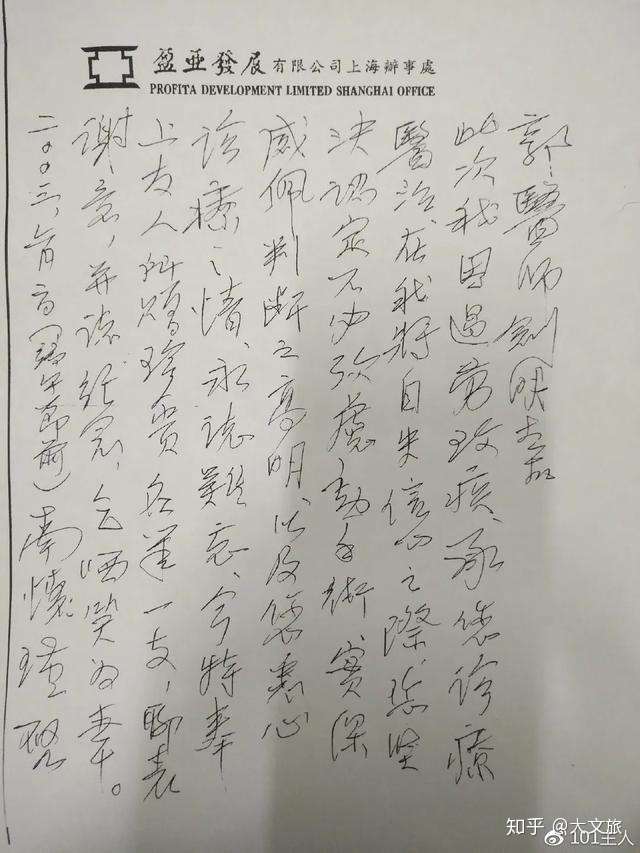 盈亞發展有限公司上海辦事處
PROFITA DEVELOPMENT LIMITED SHANGHAI OFFICE
郭醫師劍明
此次我因過勞致疾、承您診療
醫治、在我將自失信心之際、您堅
決認定不必考慮動手術、實深
感佩判斷之高明、以及您惠心
診療之情、永誌難忘、今特奉
上友人所贈珍貴名筆一支，聊表
謝意，并誌紀念，乞哂笑为幸。
二〇〇三、六月 (端午節前) 南懷瑾
知乎 @大文旅
101主人